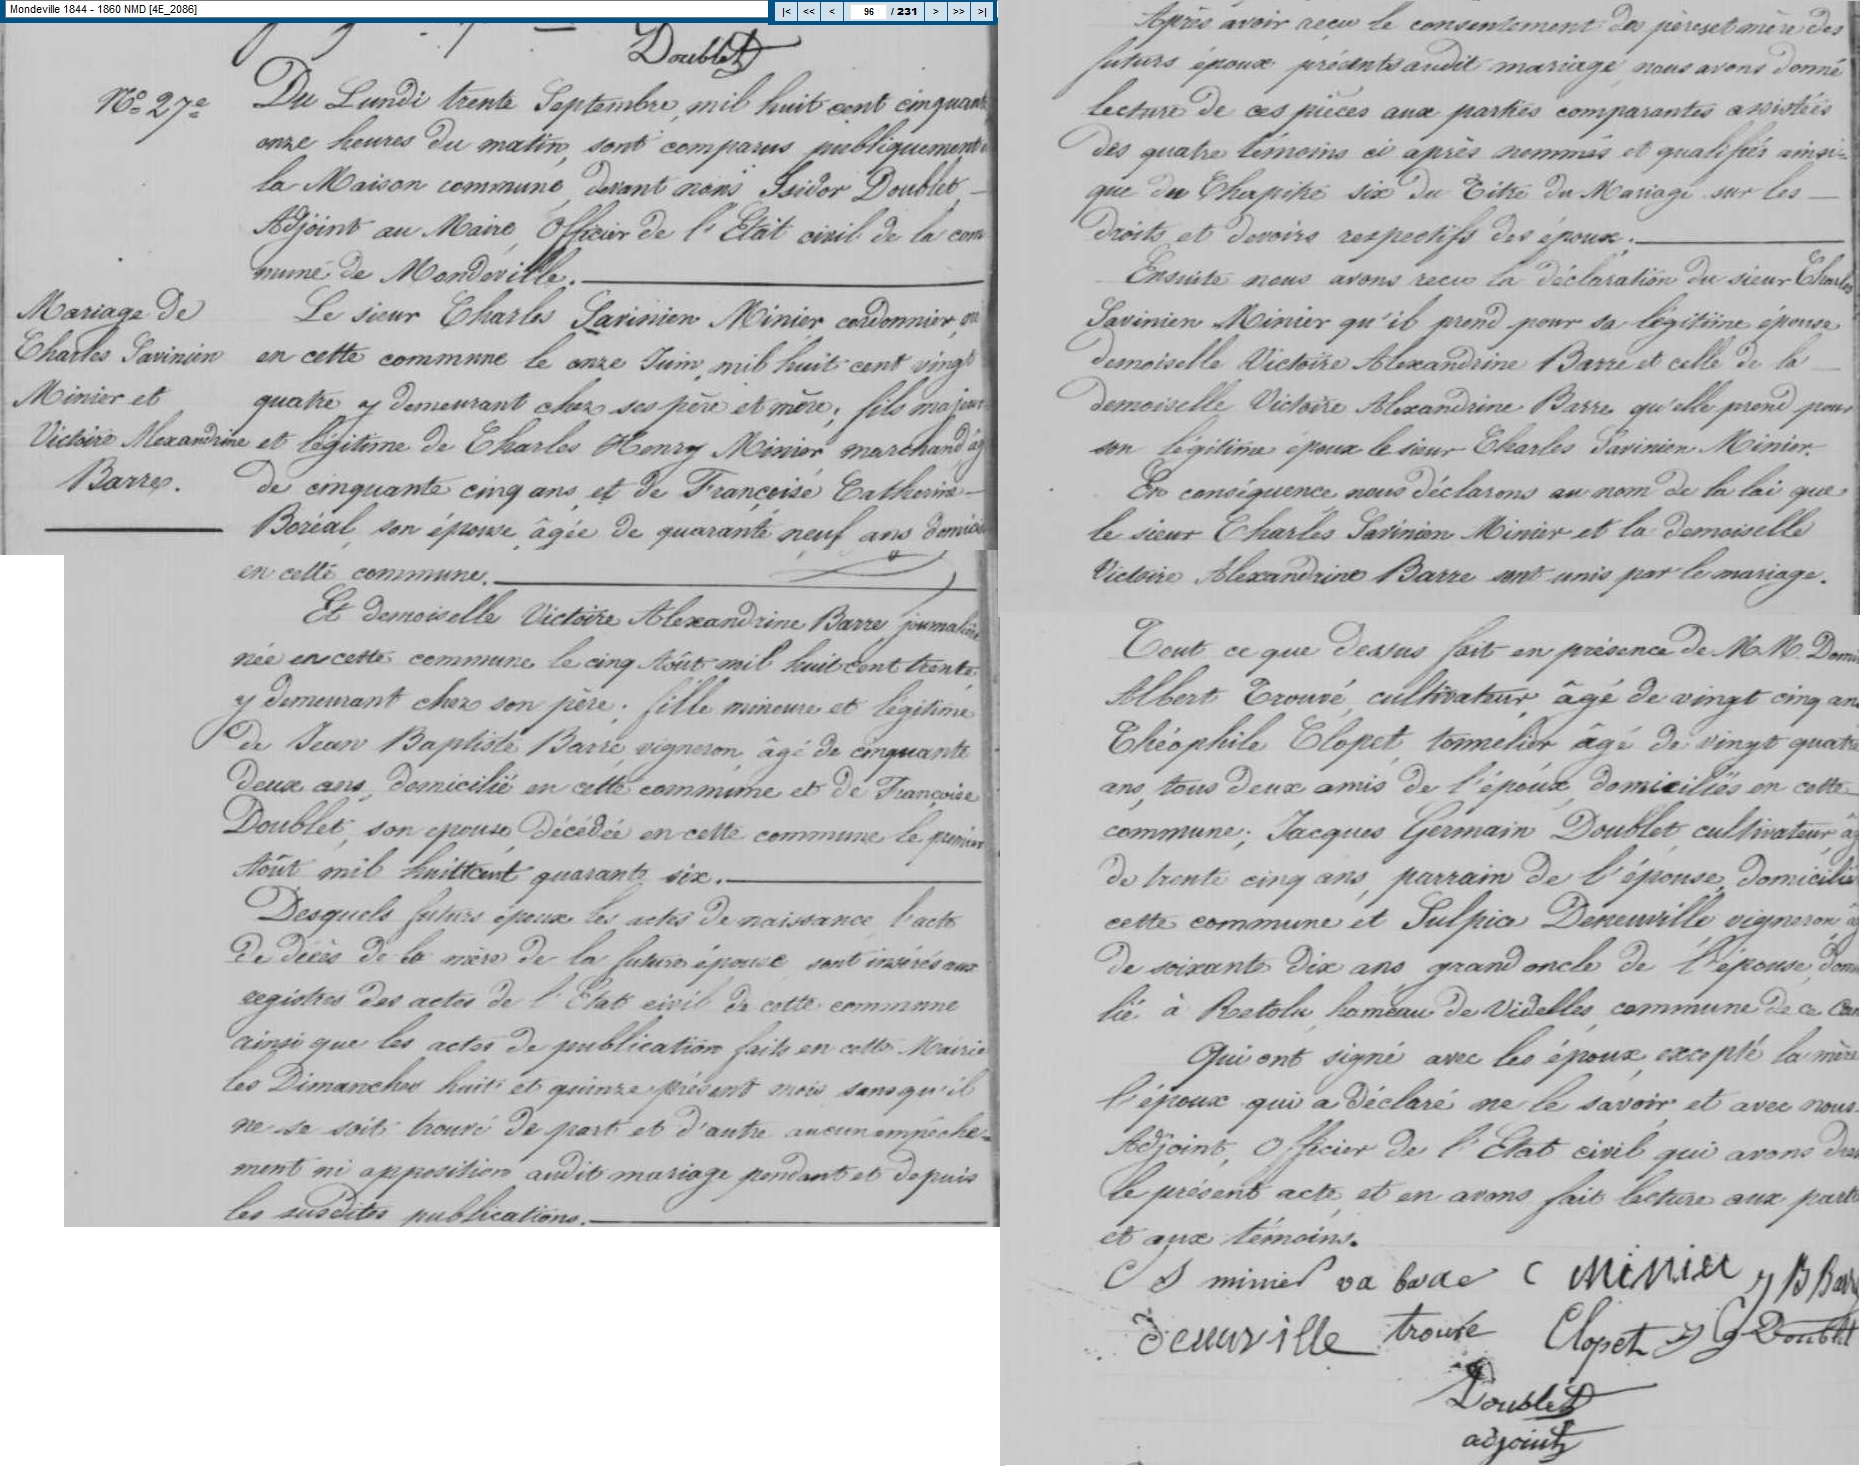 Mondeville 1844 - 1860 NMD [4E_2086]
|< << < 96 / 231 > >> >|
Doublet
No. 27e
Du Lundi trente Septembre, mil huit cent cinquant
onze heures du matin, sont comparus publiquement
la Maison commune, devant nous Isidor Doublet,
Adjoint au Maire, Officier de l'Etat civil de la com
mune de Mondeville.
Mariage de
Charles Savinien
Minier et
Victoire Alexandrine
Barre.
Le sieur Charles Savinien Minier, cordonnier,
en cette commune le onze Juin, mil huit cent vingt
quatre y demeurant chez ses père et mère; fils majeur
et légitime de Charles Henry Minier marchand âg
de cinquante cinq ans, et de Françoise Catherine
Boréal, son épouse, âgée de quarante neuf ans domici
en cette commune.
Et demoiselle Victoire Alexandrine Barre, journaliè
née en cette commune le cinq Août mil huit cent trente,
y demeurant chez son père; fille mineure et légitime
de Jean Baptiste Barre, vigneron, âgé de cinquante
deux ans, domicilié en cette commune et de Françoise
Doublet, son epouse, décédée en cette commune le premier
Août mil huit cent quarante six.
Desquels futurs époux les actes de naissance, l'acte
de décès de la mère de la future épouse, sont insérés aux
registres des actes de l'Etat civil de cette commune
ainsi que les actes de publication faits en cette Mairie
les Dimanches huit et quinze présent mois sans qu'il
ne se soit trouvé de part et d'autre aucun empêche-
ment ni opposition audit mariage pendant et depuis
les susdites publications.
Après avoir reçu le consentement des père et mère des
futurs époux présents audit mariage, nous avons donné
lecture de ces pièces aux parties comparantes assistées
des quatre témoins ci après nommés et qualifiés ainsi-
que du Chapitre six du Titre du Mariage sur les
droits et devoirs respectifs des époux.
Ensuite nous avons recu la déclaration du sieur Charles
Savinien Minier qu'il prend pour sa légitime épouse
demoiselle Victoire Alexandrine Barre et celle de la
demoiselle Victoire Alexandrine Barre, qu'elle prend pour
son légitime époux le sieur Charles Savinien Minier.
En conséquence nous déclarons au nom de la loi que
le sieur Charles Savinien Minier et la demoiselle
Victoire Alexandrine Barre sont unis par le mariage.
Tout ce que dessus fait en présence de M.M. Domi
Albert Trouvé, cultivateur, âgé de vingt cinq ans
Théophile Clopet, tonnelier âgé de vingt quatre
ans, tous deux amis de l'époux, domiciliés en cette
commune; Jacques Germain Doublet, cultivateur, âg
de trente cinq ans, parrain de l'épouse, domicilié
cette commune et Sulpice Deneuville vigneron âg
de soixante dix ans grand oncle de l'épouse, domi
lié à Retolu, hameau de Videlles, commune de ce Can
Qui ont signé avec les époux, excepté la mère
l'époux qui a déclaré ne le savoir, et avec nous
Adjoint, Officier de l'Etat civil qui avons dres
le présent acte, et en avons fait lecture aux parti
et aux témoins.
C S minier va barae C Minier J B Barre
Deneuville trouve Clopet J G Doublet
Doublet
adjoint